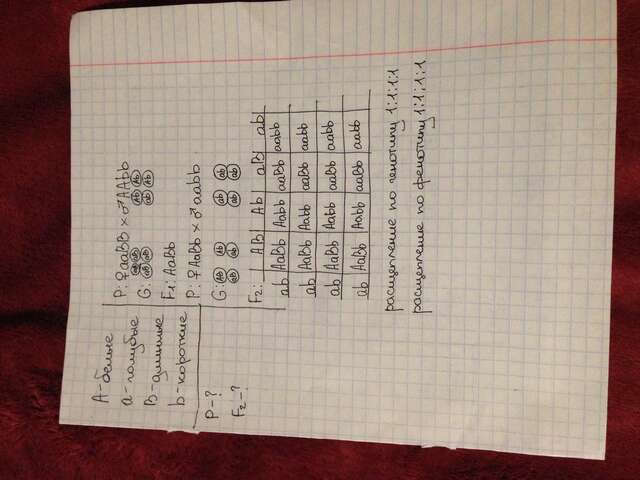 A-белые
a-голубые
B-длинные
b-короткие
P-?
F2-?
P: ♀aaBB × ♂AAbb
G:
F1: AaBb
P: ♀AaBb × ♂aabb
G: ab ab
ab ab
F2:
AB Ab aB ab
ab AaBb Aabb aaBb aabb
ab AaBb Aabb aaBb aabb
ab AaBb Aabb aaBb aabb
ab AaBb Aabb aaBb aabb
расщепление по генотипу 1:1:1:1
расщепление по фенотипу 1:1:1:1